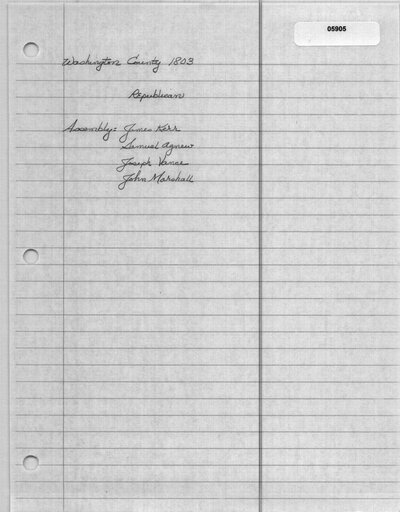 05905
Washington County 1803
Republican
Assembly: James Kerr
Samuel Agnew
Joseph Vance
John Marshall